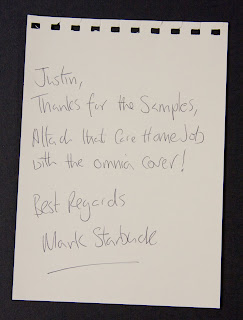 Justin,
Thanks for the Samples,
Attach that Care Home Job
with the omnia cover!
Best Regards
Mark Starbuck